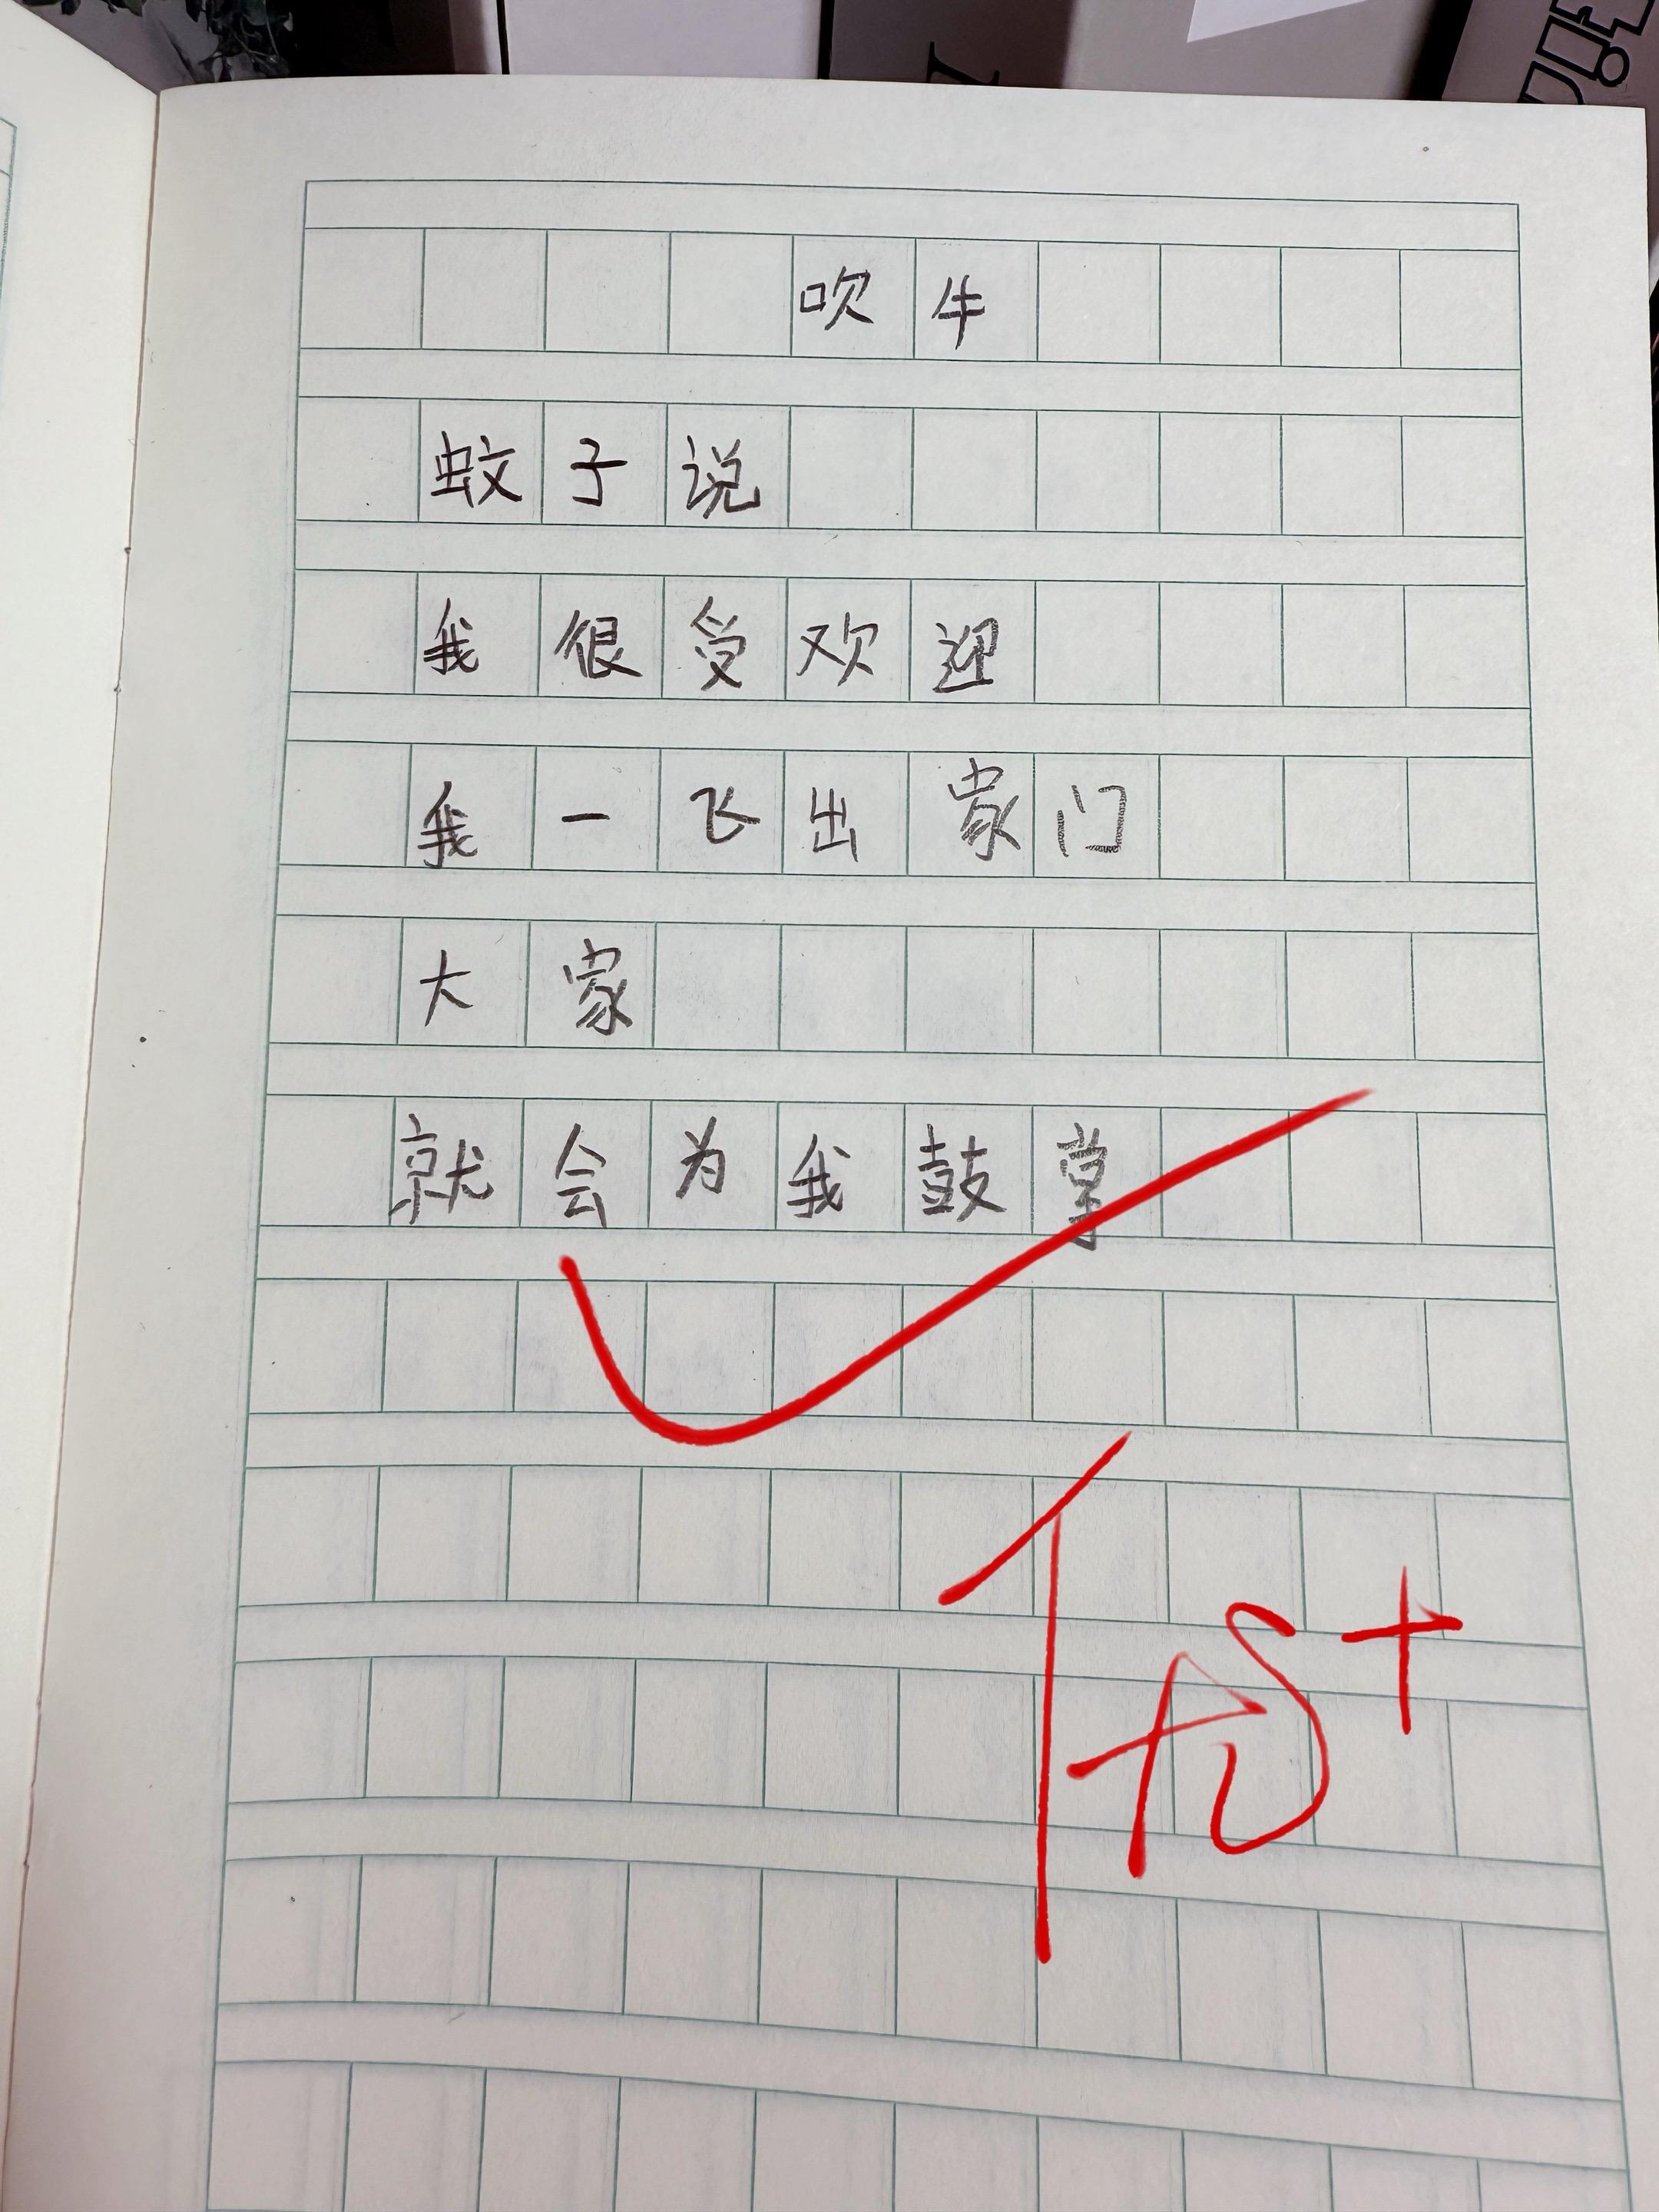 吹牛
蚊子说
我很受欢迎
我一飞出家门
大家
就会为我鼓掌
优+